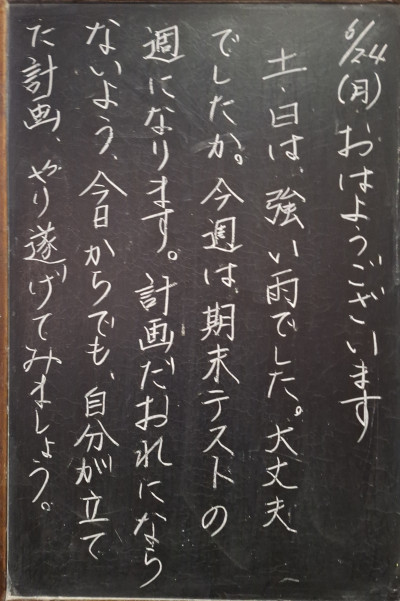 6/24(月)おはようございます
土・日は、強い雨でした。大丈夫
でしたか。今週は、期末テストの
週になります。計画だおれになら
ないよう、今日からでも、自分が立て
た計画、やり遂げてみましょう。